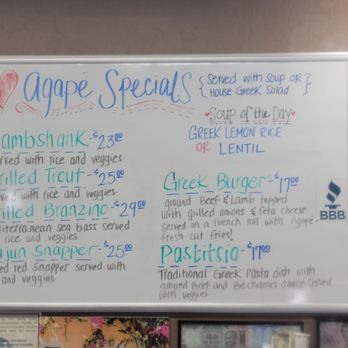 Agapé Specials
{ Served with soup or }
House Greek Salad
Soup of the Day
GREEK LEMON RICE
OR LENTIL
ambshank - $23.00
rved with rice and veggies
illed Trout - $25.00
ved with rice and veggies
illed Branzino - $29.00
diterranean sea bass served
rice and veggies
jun Snapper - $25.00
ed red snapper served with
and veggies
Greek Burger - $17.00
ground Beef & Lamb topped
with grilled onions & feta cheese
Served on a french roll with Agapé
Fresh cut fries!
Pastitsio - $17.00
Traditional Greek Pasta dish with
ground Beef and Béchamel sauce served
with veggies
BBB